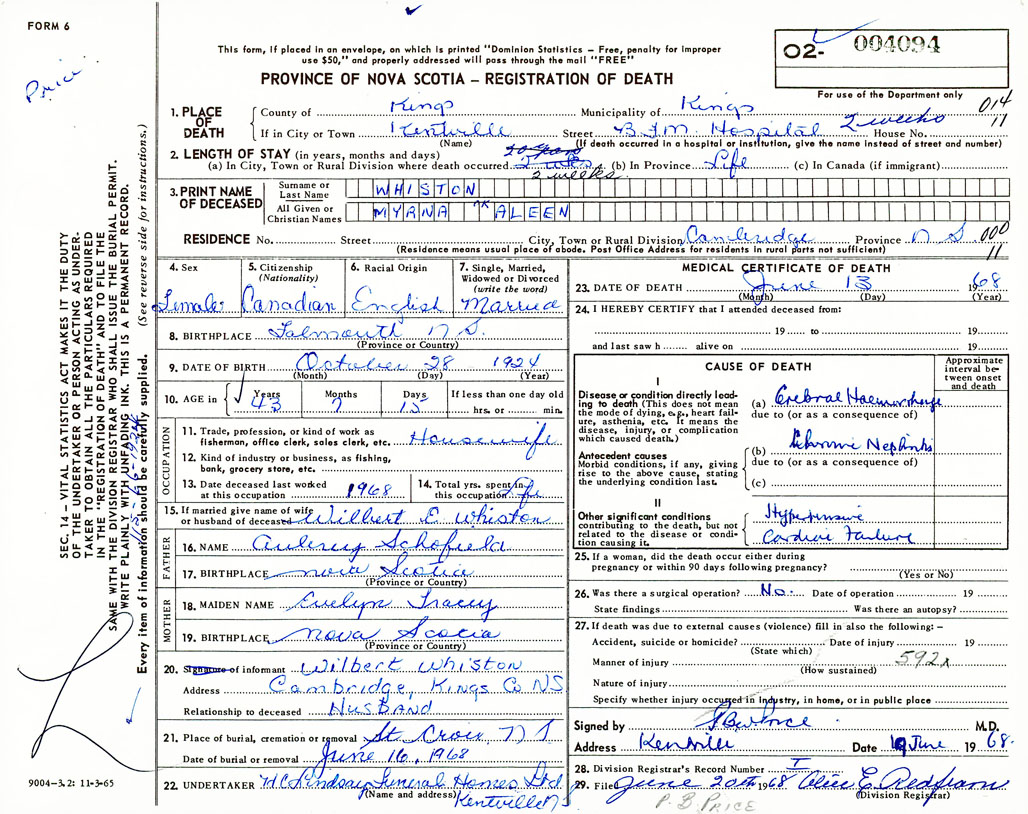 FORM 6
Price
02- 004094
This form, if placed in an envelope, on which is printed "Dominion Statistics - Free, penalty for improper
use $50," and properly addressed will pass through the mail "FREE"
PROVINCE OF NOVA SCOTIA - REGISTRATION OF DEATH
For use of the Department only
014
11
1. PLACE OF DEATH
County of Kings Municipality of Kings
If in City or Town Kentville Street B.F.M. Hospital 2 weeks House No.
(Name) (If death occurred in a hospital or institution, give the name instead of street and number)
2. LENGTH OF STAY (in years, months and days)
(a) In City, Town or Rural Division where death occurred 2 weeks (b) In Province Life (c) In Canada (if immigrant)
3. PRINT NAME OF DECEASED
Surname or Last Name WHISTON
All Given or Christian Names MYRNA ALEEN
RESIDENCE No. Street City, Town or Rural Division Cambridge Province N S 000
11
(Residence means usual place of abode. Post Office Address for residents in rural parts not sufficient)
4. Sex Female
5. Citizenship (Nationality) Canadian
6. Racial Origin English
7. Single, Married, Widowed or Divorced (write the word) Married
8. BIRTHPLACE Falmouth N.S.
(Province or Country)
9. DATE OF BIRTH October 28 1924
(Month) (Day) (Year)
10. AGE in Years 43 Months 7 Days 15 If less than one day old
hrs. or min.
OCCUPATION
11. Trade, profession, or kind of work as
fisherman, office clerk, sales clerk, etc. Housewife
12. Kind of industry or business, as fishing,
bank, grocery store, etc.
13. Date deceased last worked
at this occupation 1968
14. Total yrs. spent in
this occupation Life
15. If married give name of wife
or husband of deceased Wilbert E Whiston
FATHER
16. NAME Aubrey Schofield
17. BIRTHPLACE Nova Scotia
(Province or Country)
MOTHER
18. MAIDEN NAME Evelyn Tracey
19. BIRTHPLACE Nova Scotia
(Province or Country)
20. Signature of informant Wilbert Whiston
Address Cambridge, Kings Co NS
Relationship to deceased HUSBAND
21. Place of burial, cremation or removal St Croix, N S
Date of burial or removal June 16, 1968
22. UNDERTAKER H.C. Lindsay Funeral Homes Ltd
(Name and address) Kentville NS
MEDICAL CERTIFICATE OF DEATH
23. DATE OF DEATH June 13 1968
(Month) (Day) (Year)
24. I HEREBY CERTIFY that I attended deceased from:
19 to 19
and last saw h alive on 19
CAUSE OF DEATH
Approximate interval between onset and death
I
Disease or condition directly leading to death (This does not mean the mode of dying, e.g., heart failure, asthenia, etc. It means the disease, injury, or complication which caused death.)
(a) Cerebral Haemorrhage
due to (or as a consequence of)
Antecedent causes
Morbid conditions, if any, giving rise to the above cause, stating the underlying condition last.
(b) Chronic Nephritis
due to (or as a consequence of)
(c)
II
Other significant conditions contributing to the death, but not related to the disease or condition causing it.
Hypertensive
Cardiac Failure
25. If a woman, did the death occur either during
pregnancy or within 90 days following pregnancy?
(Yes or No)
26. Was there a surgical operation? No. Date of operation 19
State findings Was there an autopsy?
27. If death was due to external causes (violence) fill in also the following:-
Accident, suicide or homicide? Date of injury 19
(State which)
Manner of injury 592x
(How sustained)
Nature of injury
Specify whether injury occurred in Industry, in home, or in public place
Signed by M.D.
Address Kentville Date 19 June 1968
28. Division Registrar's Record Number I
29. File June 20th 1968 Alice E. Redfearn
(Division Registrar)
P. B. PRICE
SEC. 14 - VITAL STATISTICS ACT MAKES IT THE DUTY
OF THE UNDERTAKER OR PERSON ACTING AS UNDER-
TAKER TO OBTAIN ALL THE PARTICULARS REQUIRED
IN THE "REGISTRATION OF DEATH" AND TO FILE THE
SAME WITH THE DIVISION REGISTRAR WHO SHALL ISSUE THE BURIAL PERMIT.
WRITE PLAINLY WITH UNFADING INK. THIS IS A PERMANENT RECORD.
Every item of information should be carefully supplied. (See reverse side for instructions.)
9004-3.2: 11-3-65